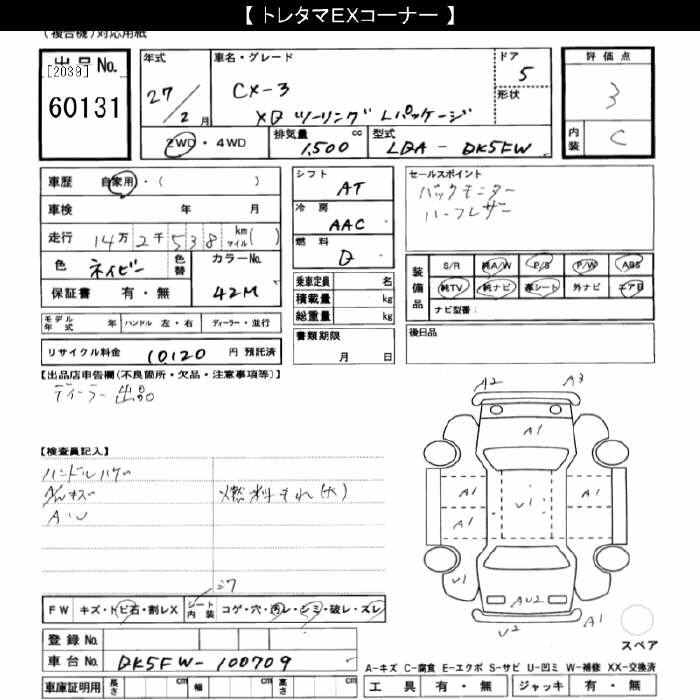 【 トレタマEXコーナー 】
(複合機)対応用紙
出品No.
[2039]
60131
年式
27/2月
車名・グレード
CX-3
XD ツーリング Lパッケージ
ドア
5
形状
評価点
3
内装
C
2WD・4WD
排気量
cc
1,500
型式
LDA - DK5FW
車歴 自家用・( )
車検 年 月
走行 14万2千538 kmマイル( )
色 ネイビー 色替 カラーNo.
42M
保証書 有・無
モデル年式 年 ハンドル 左・右 ディーラー・並行
リサイクル料金 10120 円 預託済
シフト
AT
冷房
AAC
燃料
D
乗車定員 名
積載量 kg
総重量 kg
書類期限
月 日
セールスポイント
バックモニター
ハーフレザー
装備品
S/R 純A/W P/S P/W ABS
純TV 純ナビ 革シート 外ナビ エアB
ナビ型番:
後日品
【出品店申告欄(不良箇所・欠品・注意事項等)】
ディーラー出品
【検査員記入】
ハンドルハゲ
AWキズ
A・U
燃料もれ(大)
A2 A3
A1
A1 A1
U1
A1 A1
U1
AU2
U2 A1
A1
スペア
FW キズ・トビ石・割レX シート内装 コゲ・穴・汚レ・シミ・破レ・スレ
登録No.
車台No. DK5FW-100709
車庫証明用 長さ cm 幅 cm 高さ cm
A-キズ C-腐食 E-エクボ S-サビ U-凹ミ W-補修 XX-交換済
工具 有・無 ジャッキ 有・無